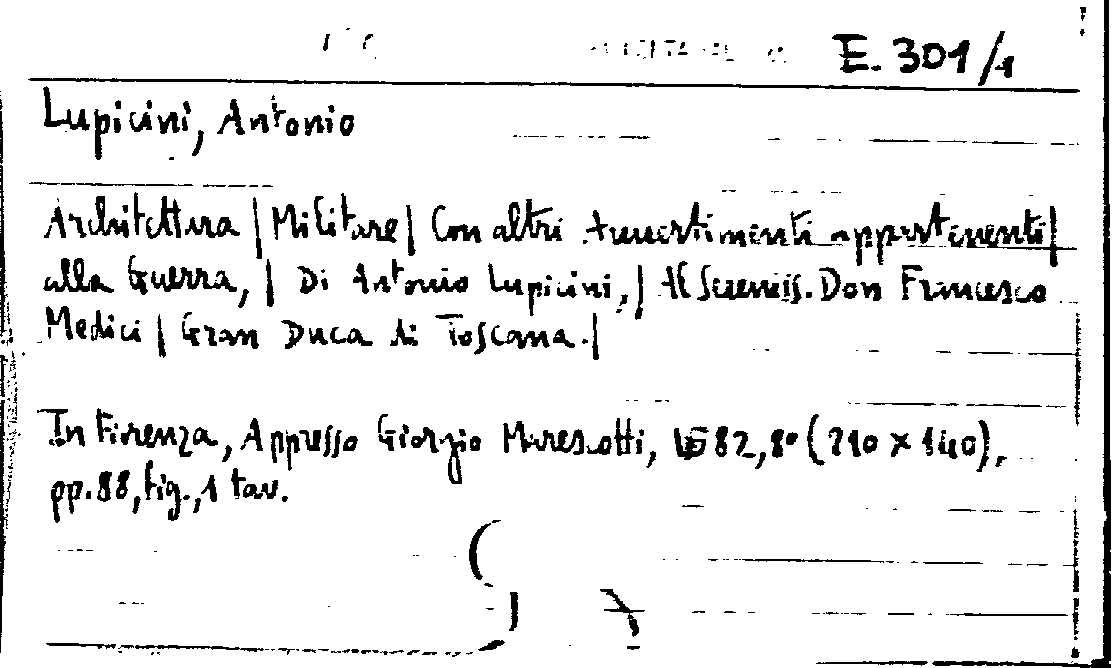 E. 301/1
Lupicini, Antonio
Architettura | Militare | Con altri Avvertimenti appartenenti |
alla Guerra, | Di Antonio Lupicini, | Al Sereniss. Don Francesco
Medici | Gran Duca di Toscana. |
In Firenza, Appresso Giorgio Marescotti, 1582, 8° (210 × 140),
pp. 88, fig., 1 tav.